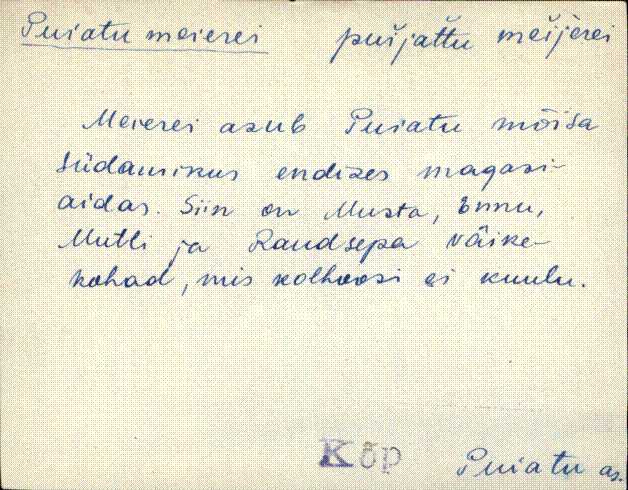 Puiatu meierei puĭjattu meĭjerei
Meierei asub Puiatu mõisa
südamikus endises magasi-
aidas. Siin on Musta, Ennu,
Mutli ja Raudsepa väike-
kohad, mis kolhoosi ei kuulu.
Kõp
Puiatu as.